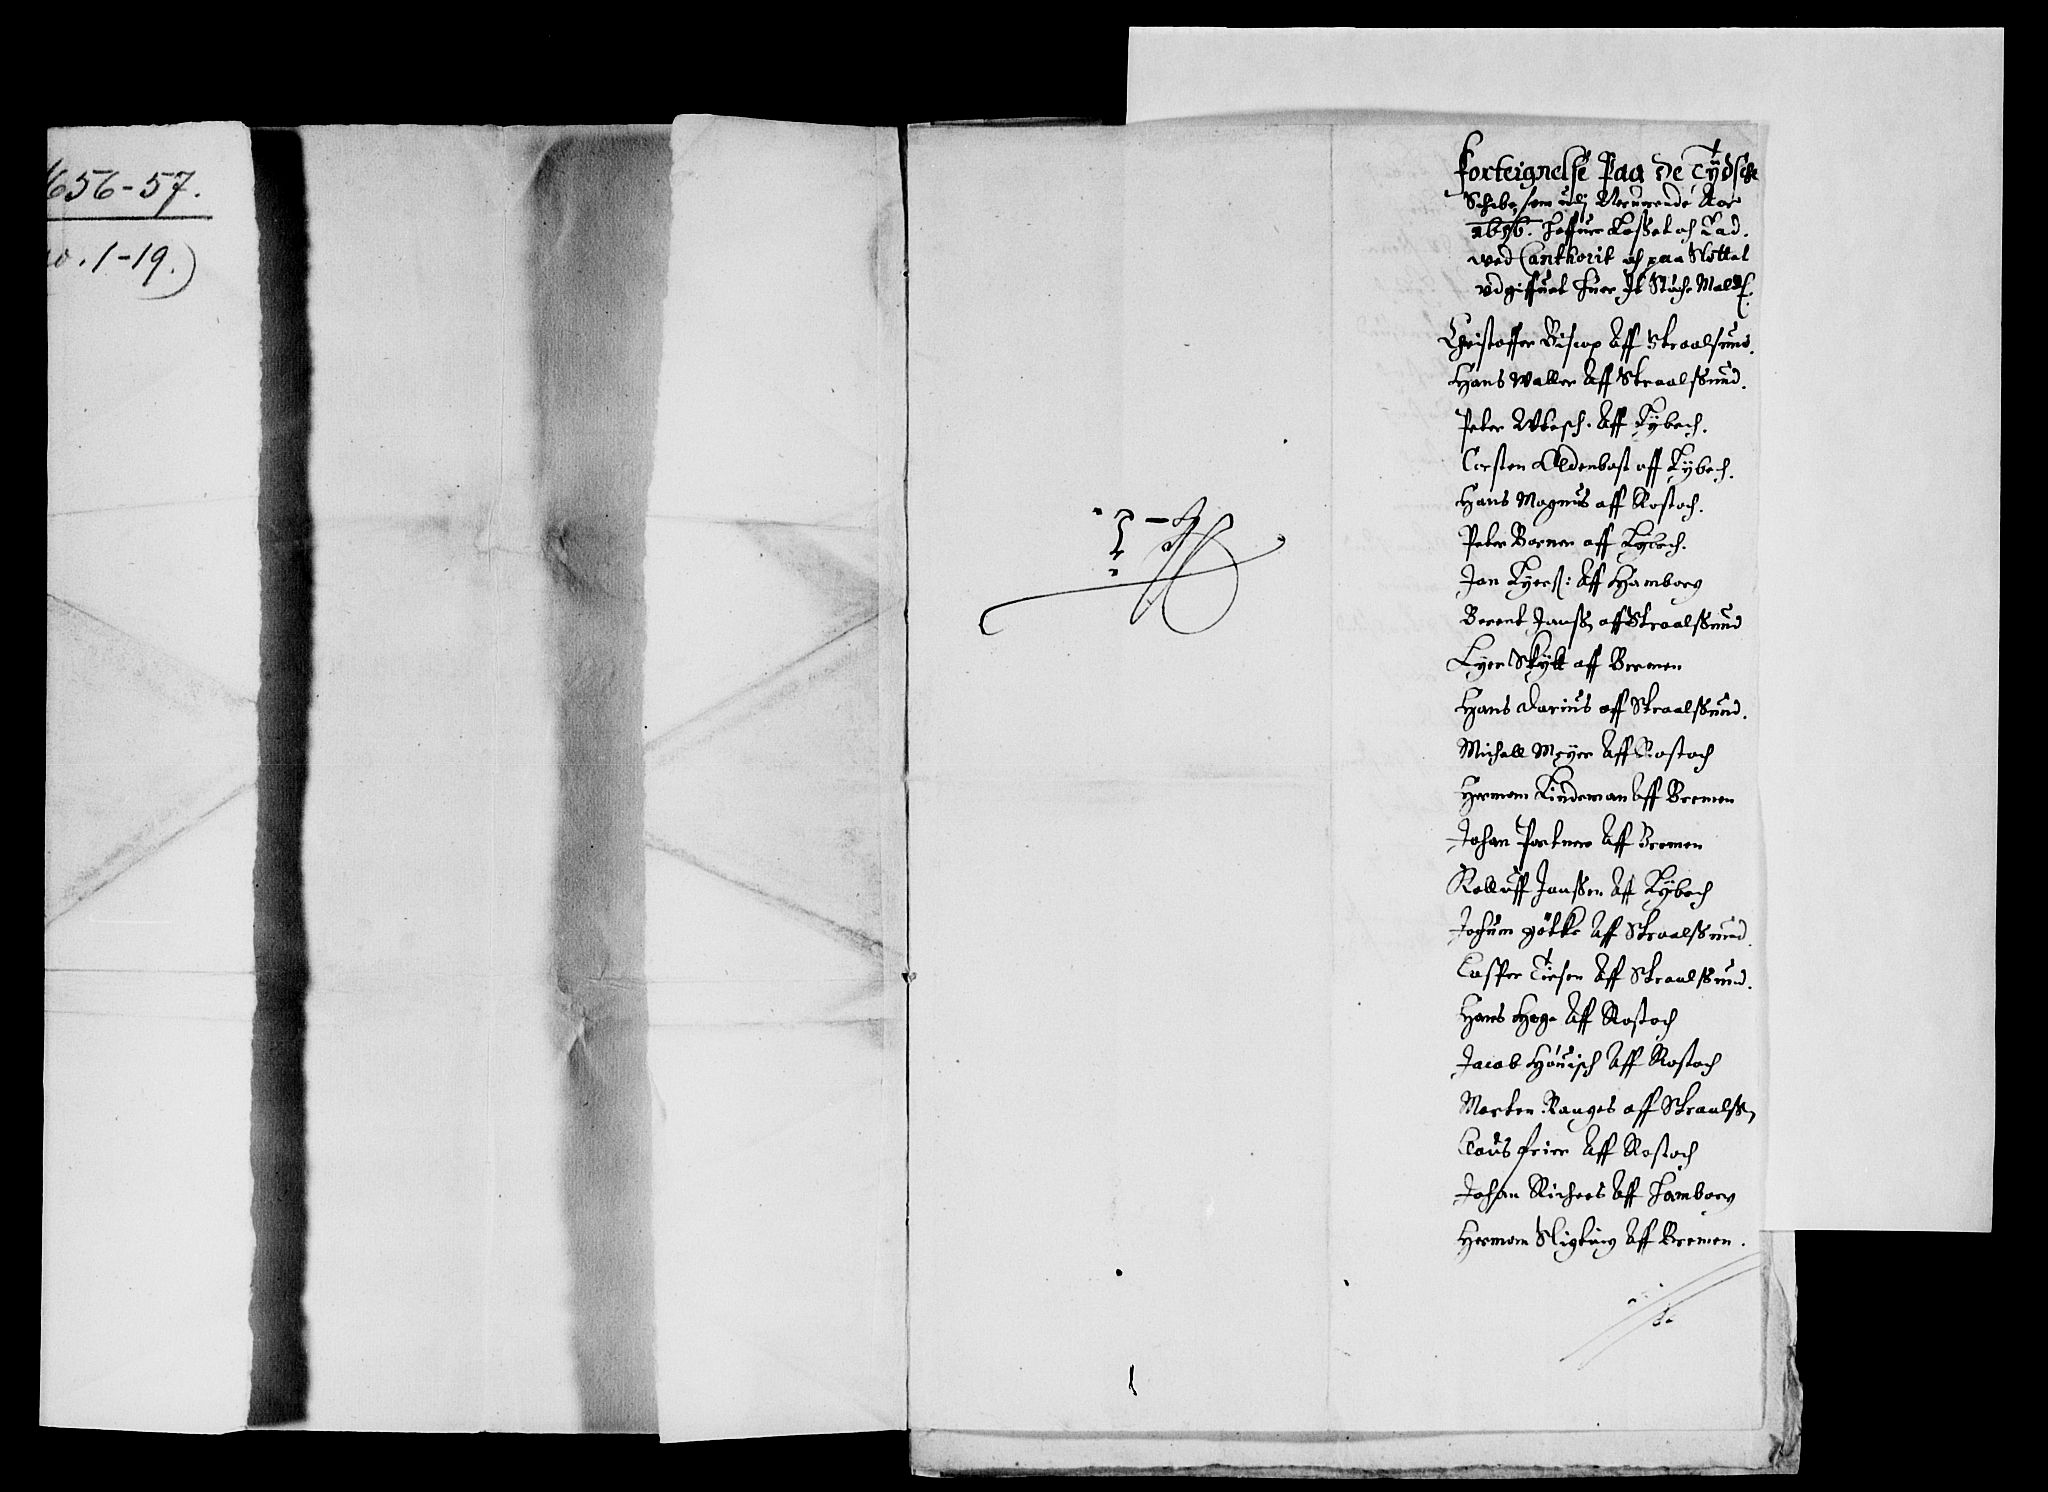 1656-57.
no. 1-19.)
Forteignelse Paa de Tydsche
Schibe, som udj Neruerende Aar
1656. Haffuer Losset och Lad.
wed Canthorit och paa Slottet
vdgiffuet huer Jt Støche Malt
Christoffer Biscop Aff Straalsund.
Hans Waller Aff Straalssund.
Peter Wbesch. Aff Lybech.
Corsten Oldenbost aff Lybech.
Hans Magnus aff Rostoch.
Peter Borner aff Lybech.
Jan Lyers: Aff Hamborg
Berent Janss, aff Straalssund
Lyer Skytt aff Bremen
Hans Darius aff Straalssund.
Michell Meyer Aff Rostoch
Herman Lindeman Aff Bremen
Johan Portner Aff Bremen
Roluff Janssen Aff Lybech
Jochum Götke Aff Straalssund.
Casper Tiesen Aff Straalssund.
Hans Hage Aff Rostoch
Jacob Höuisch Aff Rostoch
Marten Ranges aff Straalss,
Claus freier Aff Rostoch
Johan Richers Aff Hamborg
Herman Sligting Aff Bremen.